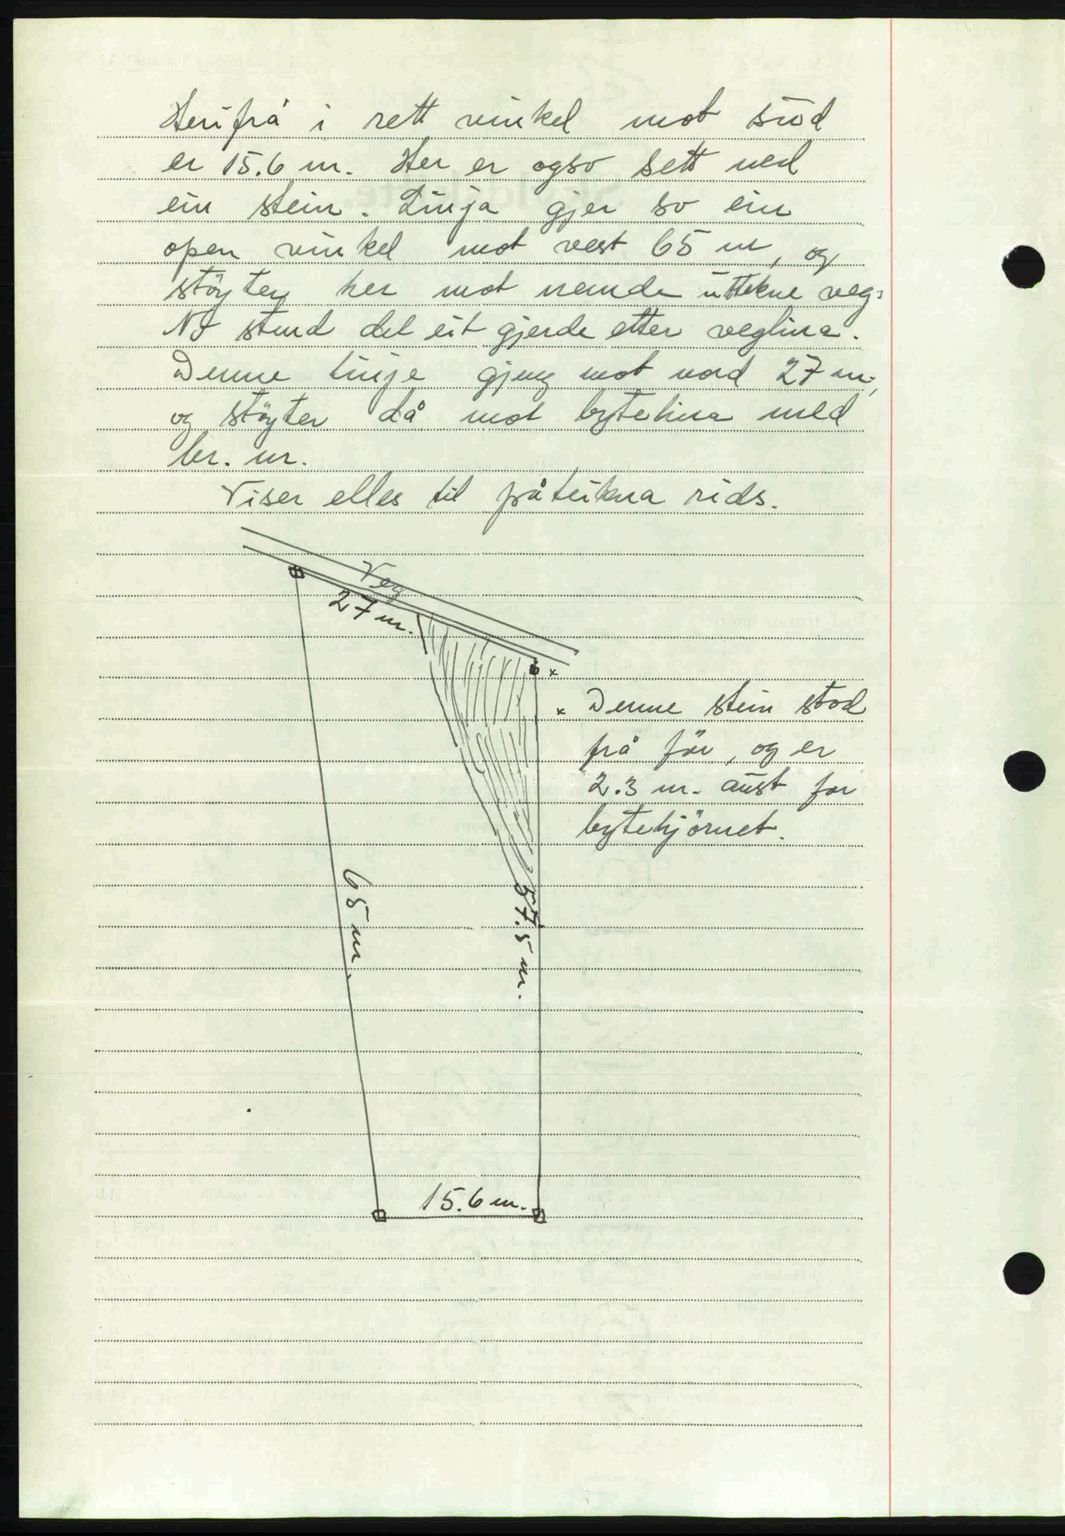 Herifrå i rett vinkel mot süd
er 15.6 m. Her er også sett ned
ein stein. Linja gjer so ein
open vinkel mot vest 65 m, og
støyter her mot nemde üttekne veg:
No stend det eit gjerde etter veglina.
Denne linje gjeng mot nord 27 m,
og støyter då mot bytelina med
br. nr.
Viser elles til påteikna rids.
Veg
27 m.
x
x Denne stein stod
frå för, og er
2.3 m. aust for
bytehjörnet.
65 m.
57.5 m.
15.6 m.